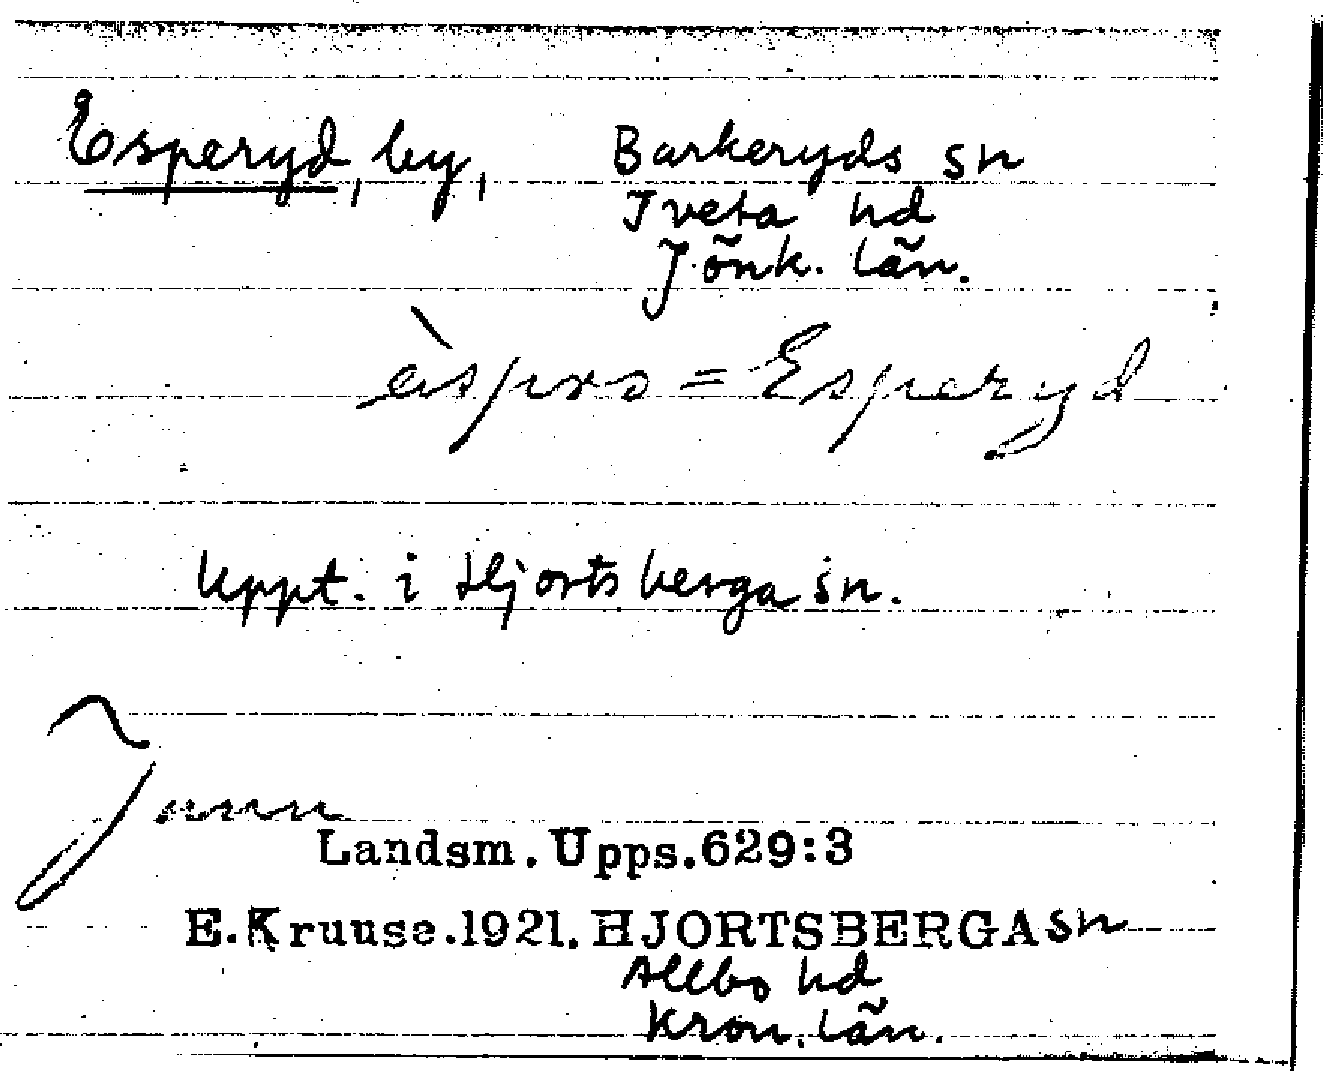 Esperyd, by, Barkeryds sn
Tveta hd
Jönk. län.
= Esperyd
Uppt. i Hjortsberga sn.
Landsm. Upps. 629:3
E. Kruuse. 1921. HJORTSBERGA sn
Allbo hd
Kron. län.